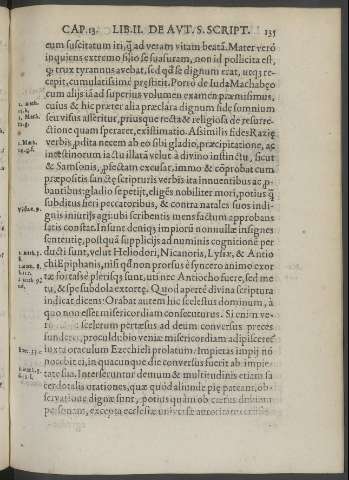 CAP.13. LIB.II. DE AVT.S.SCRIPT. 135
eum suscitatum iri, q̃ ad veram vitam beatã. Mater verò
inquiens extremo filio se suasuram, non id pollicita est,
q̃ trux tyrannus avebat, sed qđ se dignum erat, utq; re-
cepit, cumulatissimè præstitit. Porrò de Iuda Machabęo
cum alijs iã ad superius volumen examen præmisimus,
cuius & hic præter alia præclara dignum fide somnium
seu visus asseritur, priusque recta & religiosa de resurre-
ctione quam speraret, existimatio. Assimilis fides Razię
verbis, ꝑdita necem ab eo sibi gladio, præcipitatione, ac
intestinorum iactu illatã velut à divino instinctu, sicut
& Samsonis, ꝓfectam excusat, immo & cõprobat cum
præpositis sanctę scripturis verbis ita innuentibus ac ꝓ-
bantibus: gladio se petijt, eligẽs nobiliter mori, potius q̃
subditus fieri peccatoribus, & contra natales suos indi-
gnis iniurijs agi: ubi scribentis mens factum approbans
satis constat. In sunt deniq; impiorũ nonnullæ insignes
sententię, postquã supplicijs ad numinis cognitionẽ per
ducti sunt, velut Heliodori, Nicanoris, Lysiæ, & Antio
chi Epiphanis, nisi qđ non prorsus è syncero animo exor
tæ fortasse plerisq; sunt, uti nec Antiocho fuere, sed me
tu, & spe subdola extortę. Quod apertè divina scriptura
indicat dicens: Orabat autem hic scelestus dominum, à
quo non esset misericordiam consecuturus. Si enim ve-
scelerum pertæsus ad deum conversus preces
funderet, proculdubio veniæ misericordiam adipisceret
iuxta oraculum Ezechieli prolatum: Impietas impij nõ
nocebit ei, in quacunque die conversus fuerit ab impie-
tate sua. Interseruntur demum & multitudinis etiam sa
cerdotalis orationes, quæ quòd aliunde pię pateant, ob-
servatione dignæ sunt, potius quàm ob certus divini
personam, excepta ecclesiæ universæ autoritate